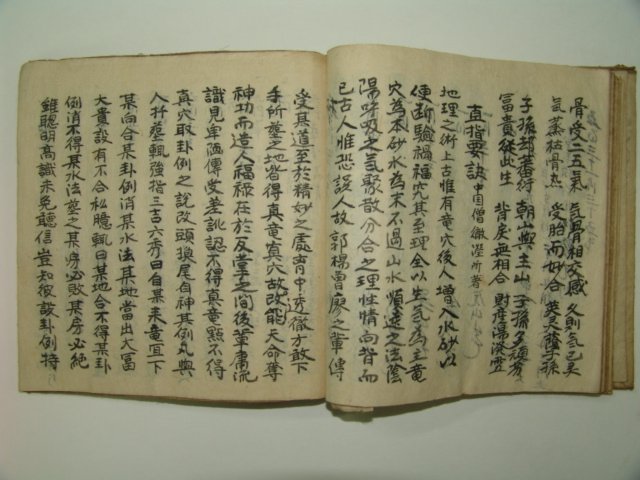 骨受二五氣 氣骨相交感 久則氣已矣
氣蒸枯骨熟 受胎而妙合 英灵蔭子孫
子孫頡蕃衍 朝山與主山 子孫多頑劣
冨貴從此生 背戾無相合
直指要訣 中国僧徹瀅所著
地理之術上古惟有竜穴後人增入水砂以
便断驗禍福究其至理全以生氣為主竜
穴為本砂水為末不過山水順逆之法陰
陽呼吸之氣聚散分合之理性情向背而
已古人惟恐誤人故郭楊曾廖之輩傳
受其道至於精妙之處胷中透徹方敢下
手所塟之地皆得真竜真穴故改天命奪
神功而造人福祿在於反掌之间後輩庸流
識見卑陋傳受差訛認不得真竜點不得
真穴取卦例之說改頭換尾自神其例凢與
人扦塟輒強指三吉六秀曰自某来竜宜下
某向合某卦例消某水法某地當出大冨
大貴設有不合私臆輒曰某地合不得某卦
例消不得某水法塟之某房必敗某房必絶
雖聰明高識未免聽信豈知彼設卦例特